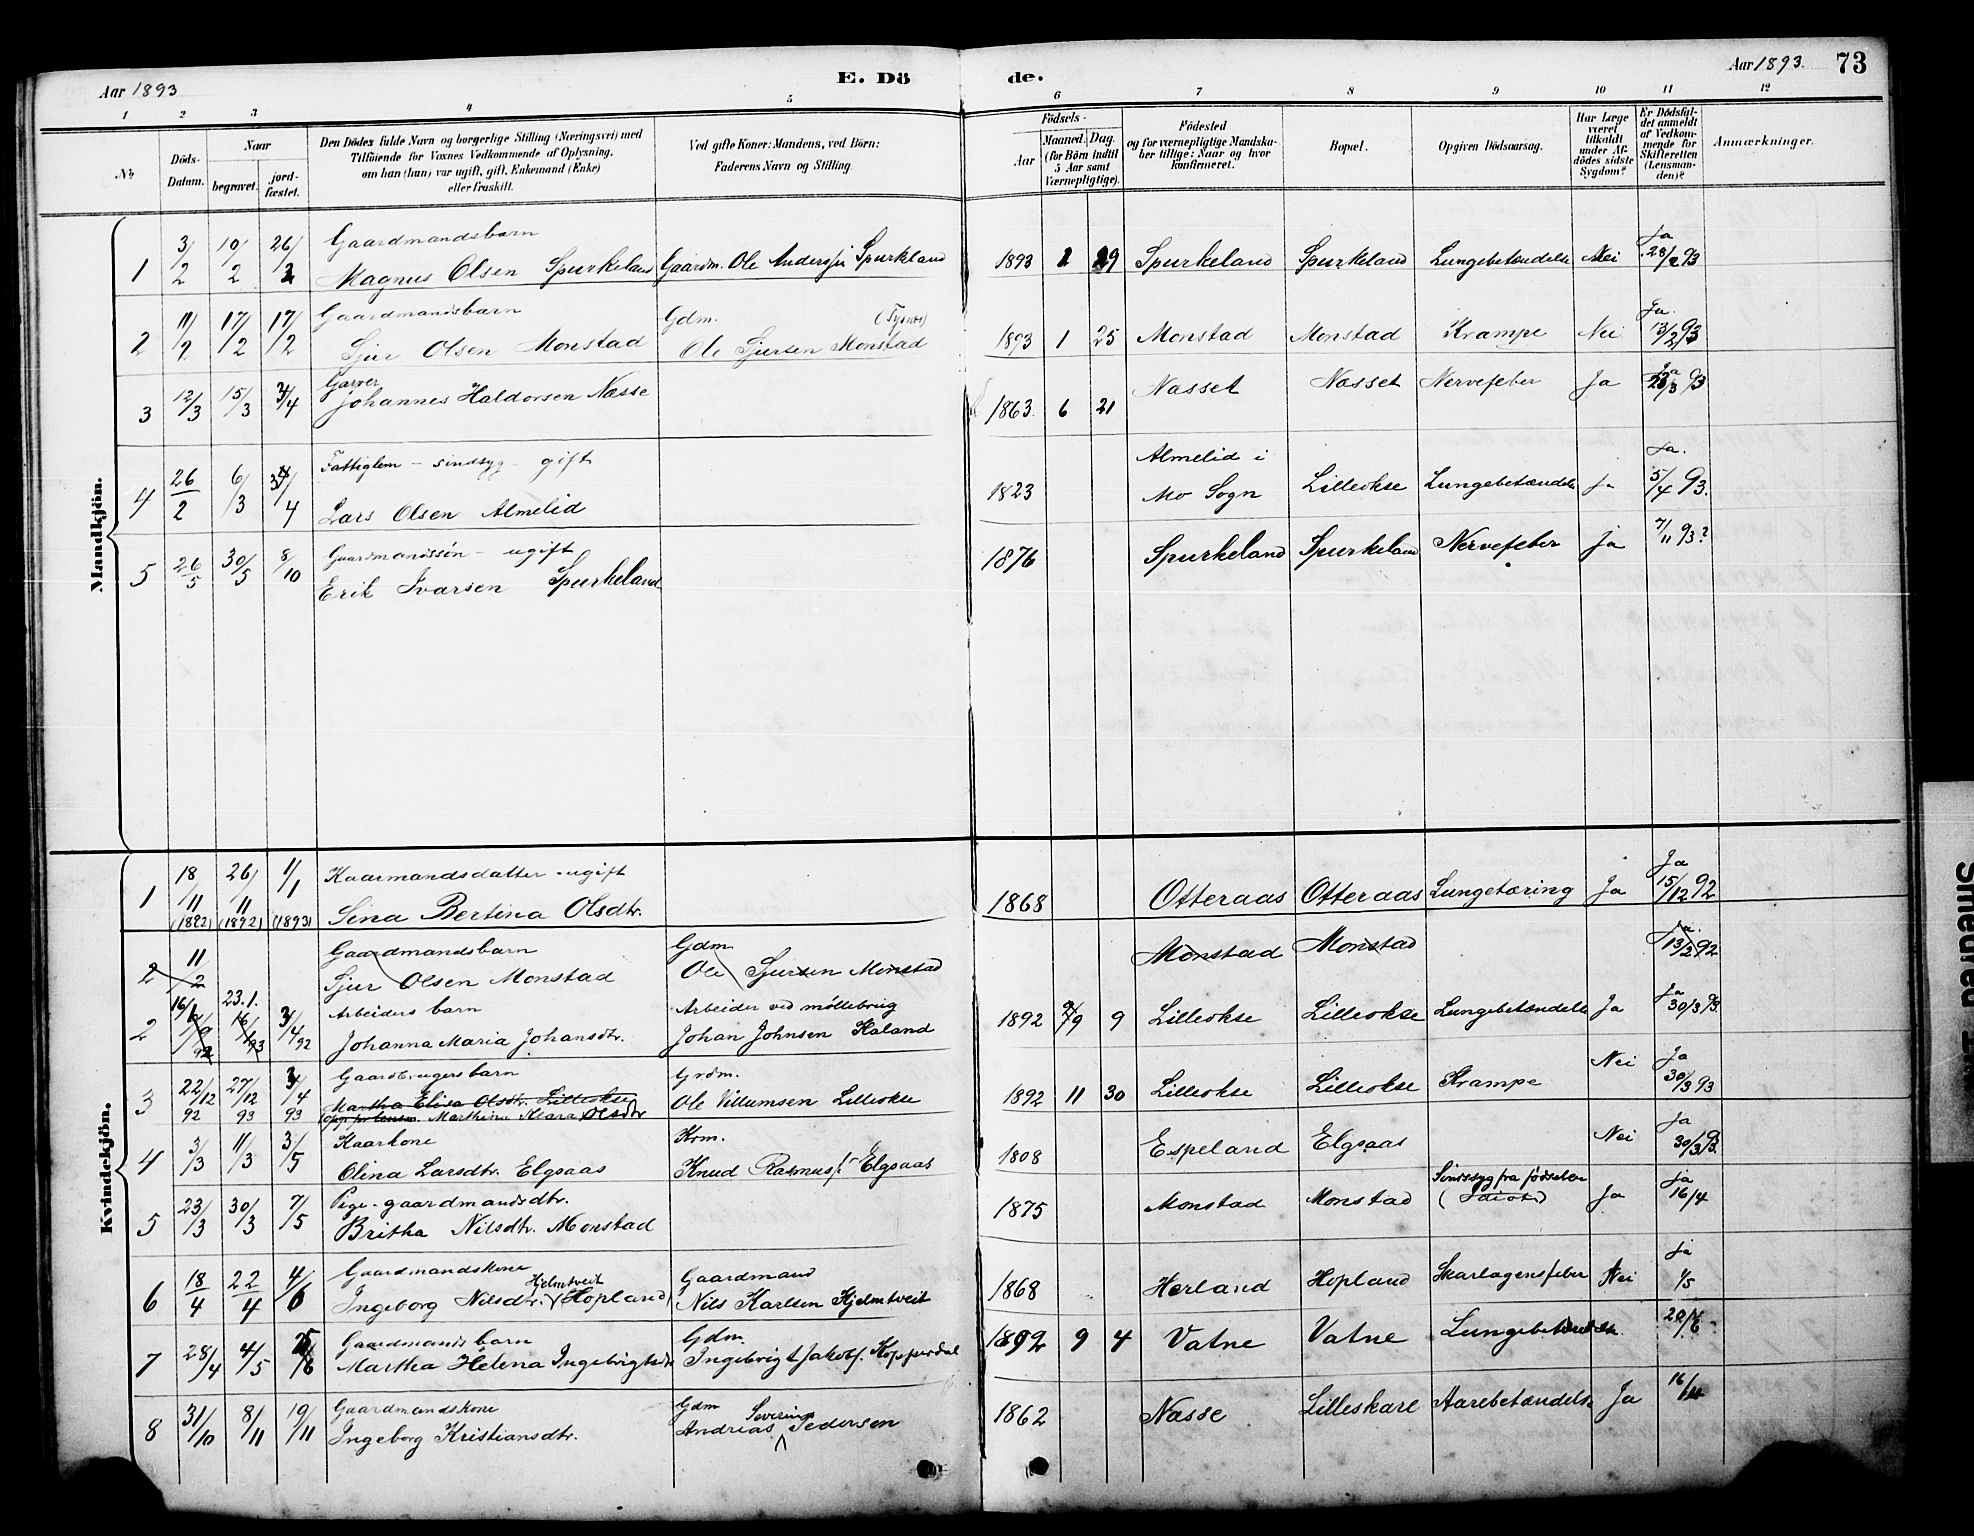 Aar 1893
E. Dö
de.
Aar 1893. 73
1 2 3 4 5 6 7 8 9 10 11 12
No
Döds-Datum.
Naar
begravet.
jord-fæstet.
Den Dödes fulde Navn og borgerlige Stilling (Næringsvei) med
Tilföiende for Voxnes Vedkommende af Oplysning,
om han (hun) var ugift, gift, Enkemand (Enke)
eller fraskilt.
Ved gifte Koner: Mandens, ved Börn:
Faderens Navn og Stilling.
Födsels-
Aar
Maaned. Dag.
(for Börn indtil
5 Aar samt
Værnepligtige).
Födested
og for værnepligtige Mandska-
ber tillige: Naar og hvor
konfirmeret.
Bopæl.
Opgiven Dödsaarsag.
Har Læge
været
tilkaldt
under Af-
dödes sidste
Sygdom?
Er Dödsfal-
det anmeldt
af Vedkom-
mende for
Skifteretten
(Lensman-
den)?
Anmærkninger.
Mandkjön.
1 3/2 10/2 26/2 Gaardmandsbarn
Magnus Olsen Spurkeland Gaardm. Ole Anderssen Spurkland 1893 1 29 Spurkeland Spurkland Lungebetændelse Nei Ja 28/2 93
2 11/2 17/2 17/2 Gaardmandsbarn
Sjur Olsen Monstad Gdm. (Tysnes)
Ole Sjursen Monstad 1893 1 25 Monstad Monstad Krampe Nei Ja. 13/2 93
3 12/3 15/3 3/4 Garver
Johannes Haldorsen Næsse 1863 6 21 Næsset Næsset Nervefeber Ja Ja 23/3 93
4 26/2 6/3 3/4 Fattiglem - sindsyg - gift
Lars Olsen Almelid 1823 Almelid i
Mo Sogn Lilleokse Lungebetændelse Ja Ja. 5/4 93.
5 26/5 30/5 8/10 Gaardmandssön - ugift
Erik Ivarsen Spurkeland 1876 Spurkeland Spurkeland Nervefeber Ja 7/11 93?
Kvindekjön.
1 18/11 (1892) 26/11 (1892) 1/1 (1893) Kaarmandsdatter - ugift
Sina Bertina Olsdtr. 1868 Otteraas Otteraas Lungetæring Ja Ja 15/12 92
2 11/2 Gaardmandsbarn
Sjur Olsen Monstad Gdm
Ole Sjursen Monstad Monstad Monstad Ja. 13/2 92
2 16/1 23.1. 3/4 92 Arbeiders barn
Johanna Maria Johansdtr. Arbeider ved möllebrug
Johan Johnsen Haland 1892 9 9 Lilleokse Lilleokse Lungebetændelse Ja Ja 30/3 93.
3 22/12 92 27/12 93 3/4 93 Gaardbrugers barn
Martha Elisa Olsdtr. Lilleokse
Marthina Klara Olsdtr Grdm.
Ole Villumsen Lilleokse 1892 11 30 Lilleokse Lilleokse Krampe Nei Ja 30/3 93
4 3/3 11/3 3/5 Kaarkone
Olina Larsdtr. Elgsaas Krm.
Knud Rasmus f. Elgsaas 1808 Espeland Elgsaas Nei Ja 30/3 93.
5 23/3 30/3 7/5 Pige - gaardmandsdtr.
Britha Nilsdtr. Monstad 1875 Monstad Monstad Sindssyg fra födselen
(Idiot) Ja Ja 16/4
6 18/4 22/4 4/6 Gaardmandskone
Hjelmtveit
Ingeborg Nilsdtr. (Hopland) Gaardmand
Nils Karlsen Hjelmtveit 1868 Herland Hopland Skarlagensfeber Nei Ja 1/5
7 28/4 4/5 5/6 Gaardmands barn
Martha Helena Ingebrigtsdtr Gdm.
Ingebrigt Jakobs. Kopperdal 1892 9 4 Vatne Vatne Lungebetændelse. 20/6
8 31/10 8/11 19/11 Gaardmandskone
Ingeborg Kristiansdtr. Gdm Severin
Andreas Pedersen 1862 Næsse Lilleskare Aarebetændelse Ja 16/11